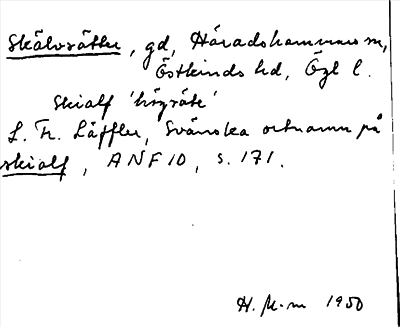 Skälvsätter, gd, Häradshammars sn,
Östkinds hd, Ögl l.
skialf 'högsäte'
L. Fr. Läffler, Svänska ortnamn på
skialf, ANF 10, s. 171.
H. M-m 1950